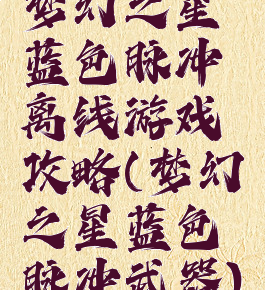 梦幻之星
蓝色脉冲
离线游戏
攻略(梦幻
之星蓝色
脉冲武器)